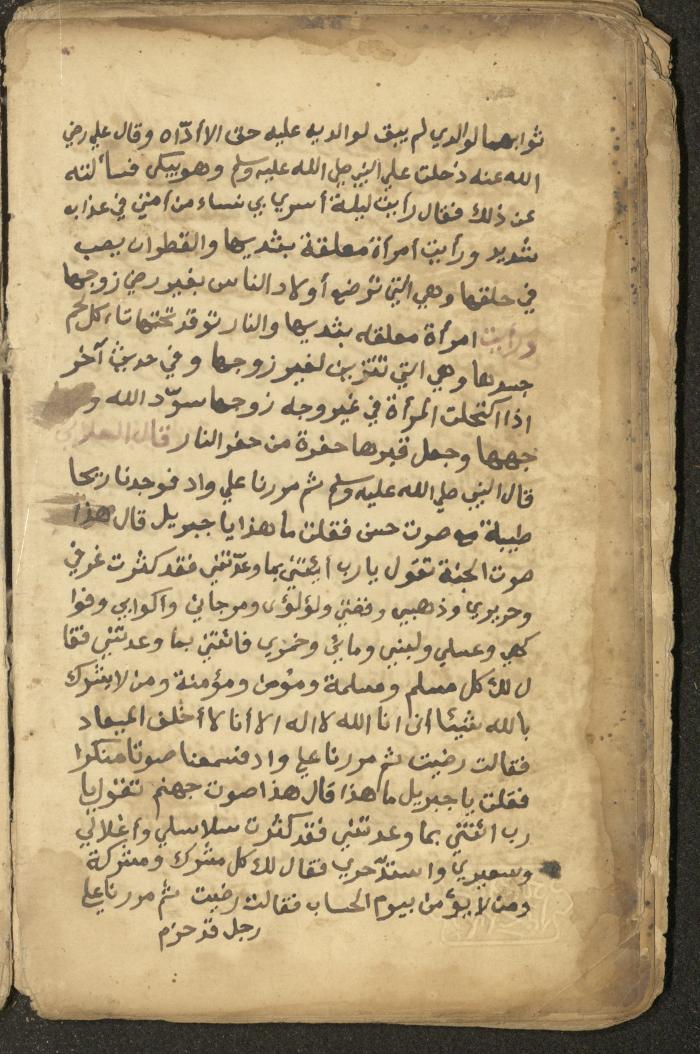 ثوابهما لوالدي لم يبق لوالديه عليه حق الا أدّاه وقال علي رضي
الله عنه دخلت علي النبي صلي الله عليه وسلم وهو يبكي فسألته
عن ذلك فقال رأيت ليلة أسري بي نساء من امتي في عذاب
شديد ورأيت أمرأة معلقة بثديها والقطران يصب
في حلقها وهي التي توضع أولاد الناس بغير رضي زوجها
ورأيت امرأة معلقه بثديها والنار توقد تحتها تاءكل لحم
جسدها وهي التي تتزين لغير زوجها وفي حديث آخر
اذا اكتحلت المرأة في غير وجه زوجها سوّد الله و
جهها وجعل قبرها حفرة من حفر النار قال العلائي
قال النبي صلي الله عليه وسلم ثم مررنا علي واد فوجدنا ريحا
طيبة مع صوت حسن فقلت ما هذا يا جبريل قال هذا
صوت الجنة تقول يا رب أئتني بما وعدّتني فقد كثرت غرفي
وحريري وذهبي وفضتي ولؤلؤي ومرجاني وأكوابي وفوا
كهي وعسلي ولبني ومائي وخمري فائتني بما وعدتني فقا
ل لك كل مسلم ومسلمة ومؤمن ومؤمنة ومن لا يشرك
بالله شيئا أني انا الله لا اله الا أنا لا أخلف الميعاد
فقالت رضيت ثم مررنا علي واد فسمعنا صوتا منكرا
فقلت يا جبريل ما هذا قال هذا صوت جهنم تقول يا
رب ائتني بما وعدتني فقد كثرت سلاسلي وأغلالي
وسعيري واشتدّ حري فقال لك كل مشرك ومشركة
ومن لا يؤمن بيوم الحساب فقالت رضيت ثم مررنا علي
رجل قد حزم